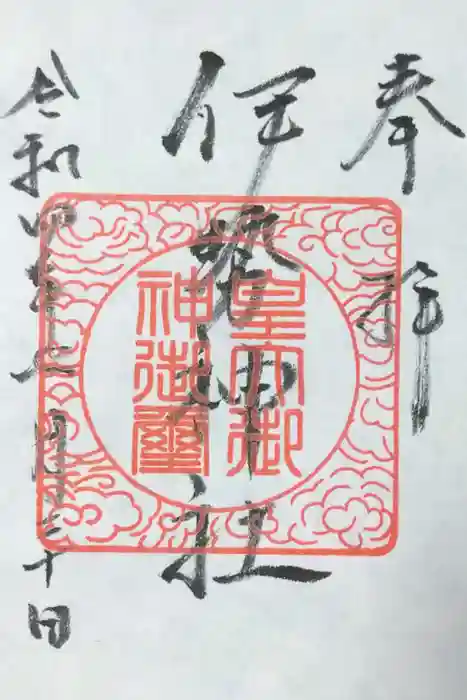 奉拝
伊勢神社
皇大御
神御璽
令和四年七月三十日